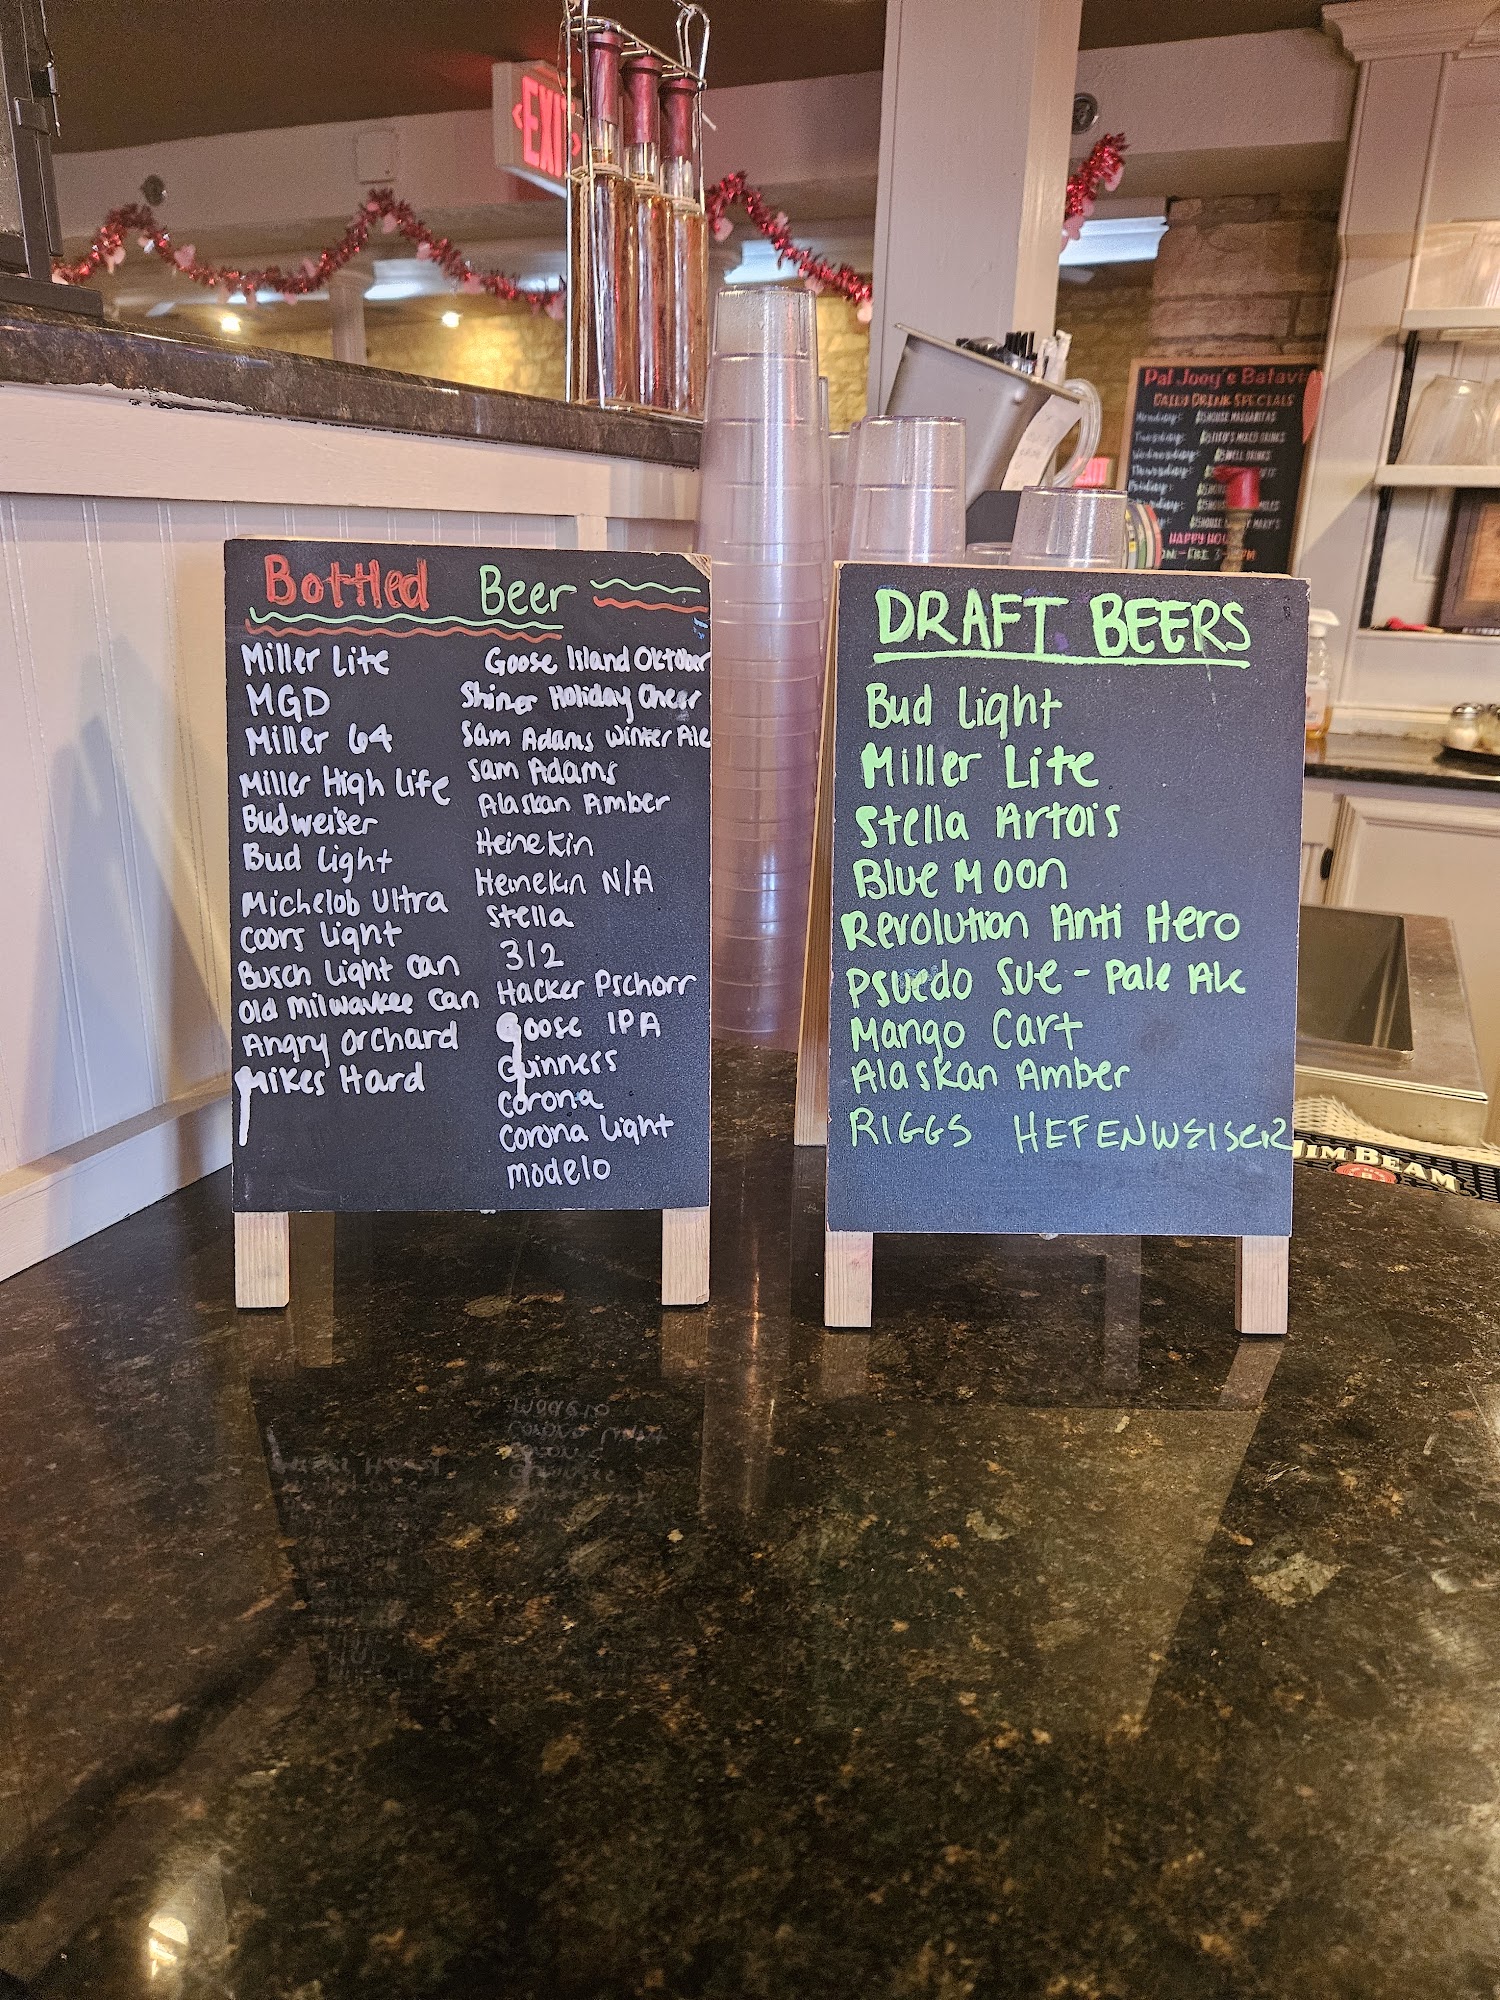 EXIT
Pal Joey's Batavia
DAILY DRINK SPECIALS
Monday: $5 HOUSE MARGARITAS
Tuesday:
Wednesday:
Thursday:
Friday:
HAPPY
Bottled Beer
Miller Lite
MGD
Miller 64
Miller High Life
Budweiser
Bud Light
Michelob Ultra
Coors Light
Busch Light Can
Old Milwaukee Can
Angry Orchard
Mikes Hard
Goose Island Oktober
Shiner Holiday Cheer
Sam Adams Winter Ale
Sam Adams
Alaskan Amber
Heinekin
Heinekin N/A
Stella
312
Hacker Pschorr
Goose IPA
Guinness
Corona
Corona Light
Modelo
DRAFT BEERS
Bud Light
Miller Lite
Stella Artois
Blue Moon
Revolution Anti Hero
Psuedo Sue - Pale Ale
Mango Cart
Alaskan Amber
RIGGS HEFENWEISEIR
JIM BEAM